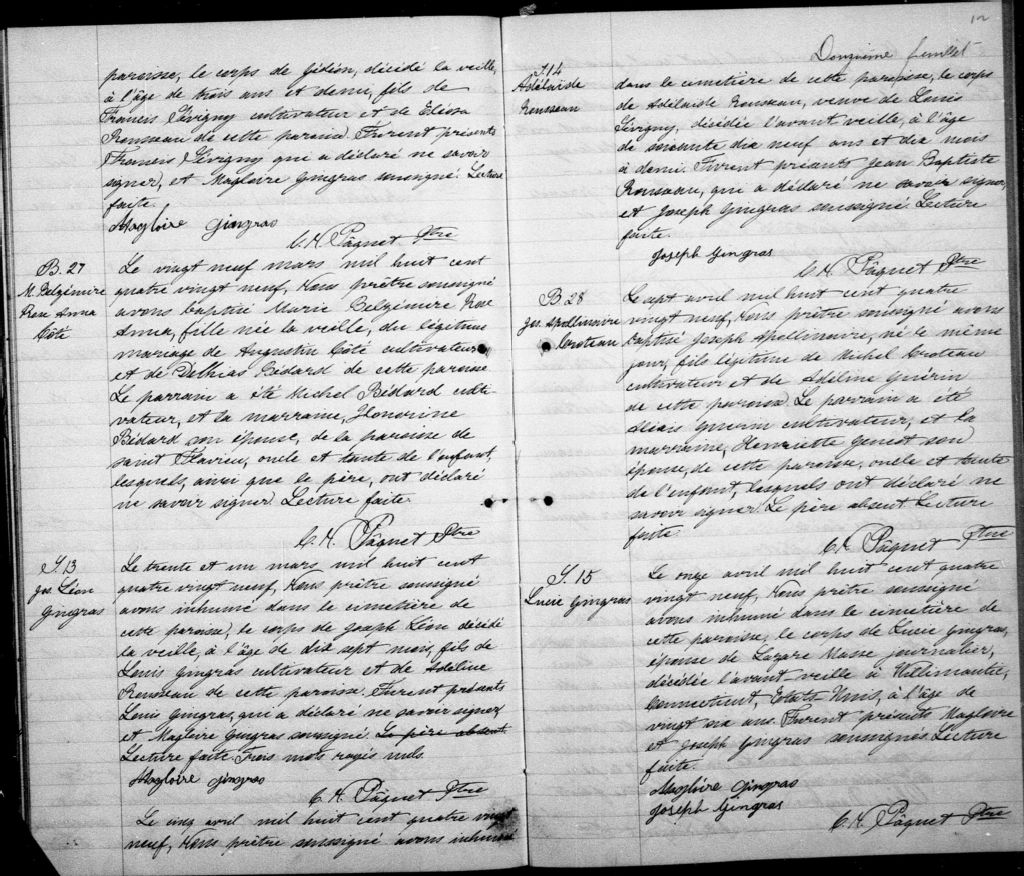 paroisse, le corps de Gédéon, décidé la veille,
à l'âge de trois ans et demi, fils de
Francis Lévigny cultivateur et de
Rousseau de cette paroisse. Furent présents
Francis Lévigny qui a déclaré ne savoir
signer, et Magloire Gingras soussigné. Lecture
faite.
Magloire Gingras
C. H. Pâquet Ptre
B. 27
M. Belzémire
Rose Anna
Côté
Le vingt neuf mars mil huit cent
quatre vingt neuf, Nous prêtre soussigné
avons baptisé Marie Belzémire Rose
Anna, fille née la veille, du légitime
mariage de Augustin Côté cultivateur
et de Bédard de cette paroisse.
Le parrain a été Michel Bédard culti-
vateur, et la marraine, Honorine
Bédard son épouse, de la paroisse de
saint Flavien, oncle et tante de l'enfant,
lesquels, ainsi que le père, ont déclaré
ne savoir signer. Lecture faite.
C. H. Pâquet Ptre
S. 13
Jos. Léon
Gingras
Le trente et un mars mil huit cent
quatre vingt neuf, Nous prêtre soussigné
avons inhumé dans le cimetière de
cette paroisse, le corps de Joseph Léon décidé
la veille, à l'âge de dix sept mois, fils de
Louis Gingras cultivateur et de Adéline
Rousseau de cette paroisse. Furent présents
Louis Gingras, qui a déclaré ne savoir signer,
et Magloire Gingras soussigné. Le père absent.
Lecture faite. Trois mots rayés nuls.
Magloire Gingras
C. H. Pâquet Ptre
Le cinq avril mil huit cent quatre vingt
neuf, Nous prêtre soussigné avons inhumé
12
Douzième feuillet
S. 14
Adélaïde
Rousseau
dans le cimetière de cette paroisse, le corps
de Adélaïde Rousseau, veuve de Louis
Lévigny, décidée l'avant veille, à l'âge
de soixante dix neuf ans et dix mois
à demi. Furent présents Jean Baptiste
Rousseau, qui a déclaré ne savoir signer,
et Joseph Gingras soussigné. Lecture
faite.
Joseph Gingras
C. H. Pâquet Ptre
B 28
Jos. Apollinaire
Croteau
Le sept avril mil huit cent quatre
vingt neuf, Nous prêtre soussigné avons
baptisé Joseph Apollinaire, né le même
jour, fils légitime de Michel Croteau
cultivateur et de Adéline Guérin
de cette paroisse. Le parrain a été
Guérin cultivateur, et la
marraine, Henriette Genest son
épouse, de cette paroisse, oncle et tante
de l'enfant, lesquels ont déclaré ne
savoir signer. Le père absent. Lecture
faite.
C. H. Pâquet Ptre
S. 15
Lucie Gingras
Le onze avril mil huit cent quatre
vingt neuf, Nous prêtre soussigné
avons inhumé dans le cimetière de
cette paroisse, le corps de Lucie Gingras,
épouse de Lazare Masse journalier,
décidée l'avant-veille à Willimantic,
Connecticut, Etats Unis, à l'âge de
vingt six ans. Furent présents Magloire
et Joseph Gingras soussignés. Lecture
faite.
Magloire Gingras
Joseph Gingras
C. H. Pâquet Ptre